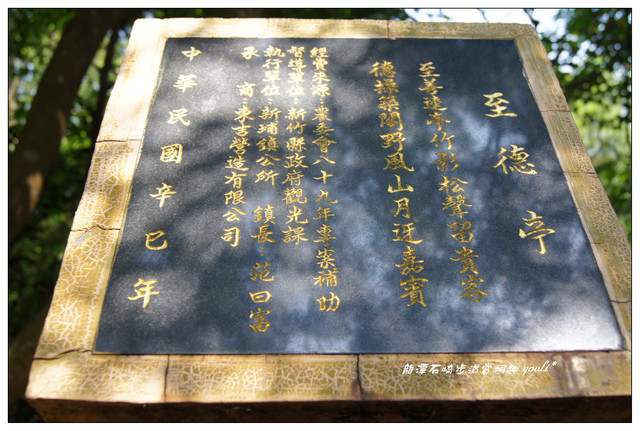 至德亭
至善建亭竹影松聲留賞客
德揚築閣野風山月迓嘉賓
經費來源：農委會八十九年專案補助
督導單位：新竹縣政府觀光課
執行單位：新埔鎮公所 鎮長：范曰富
承 商：東吉營造有限公司
中華民國辛巳年
youli*